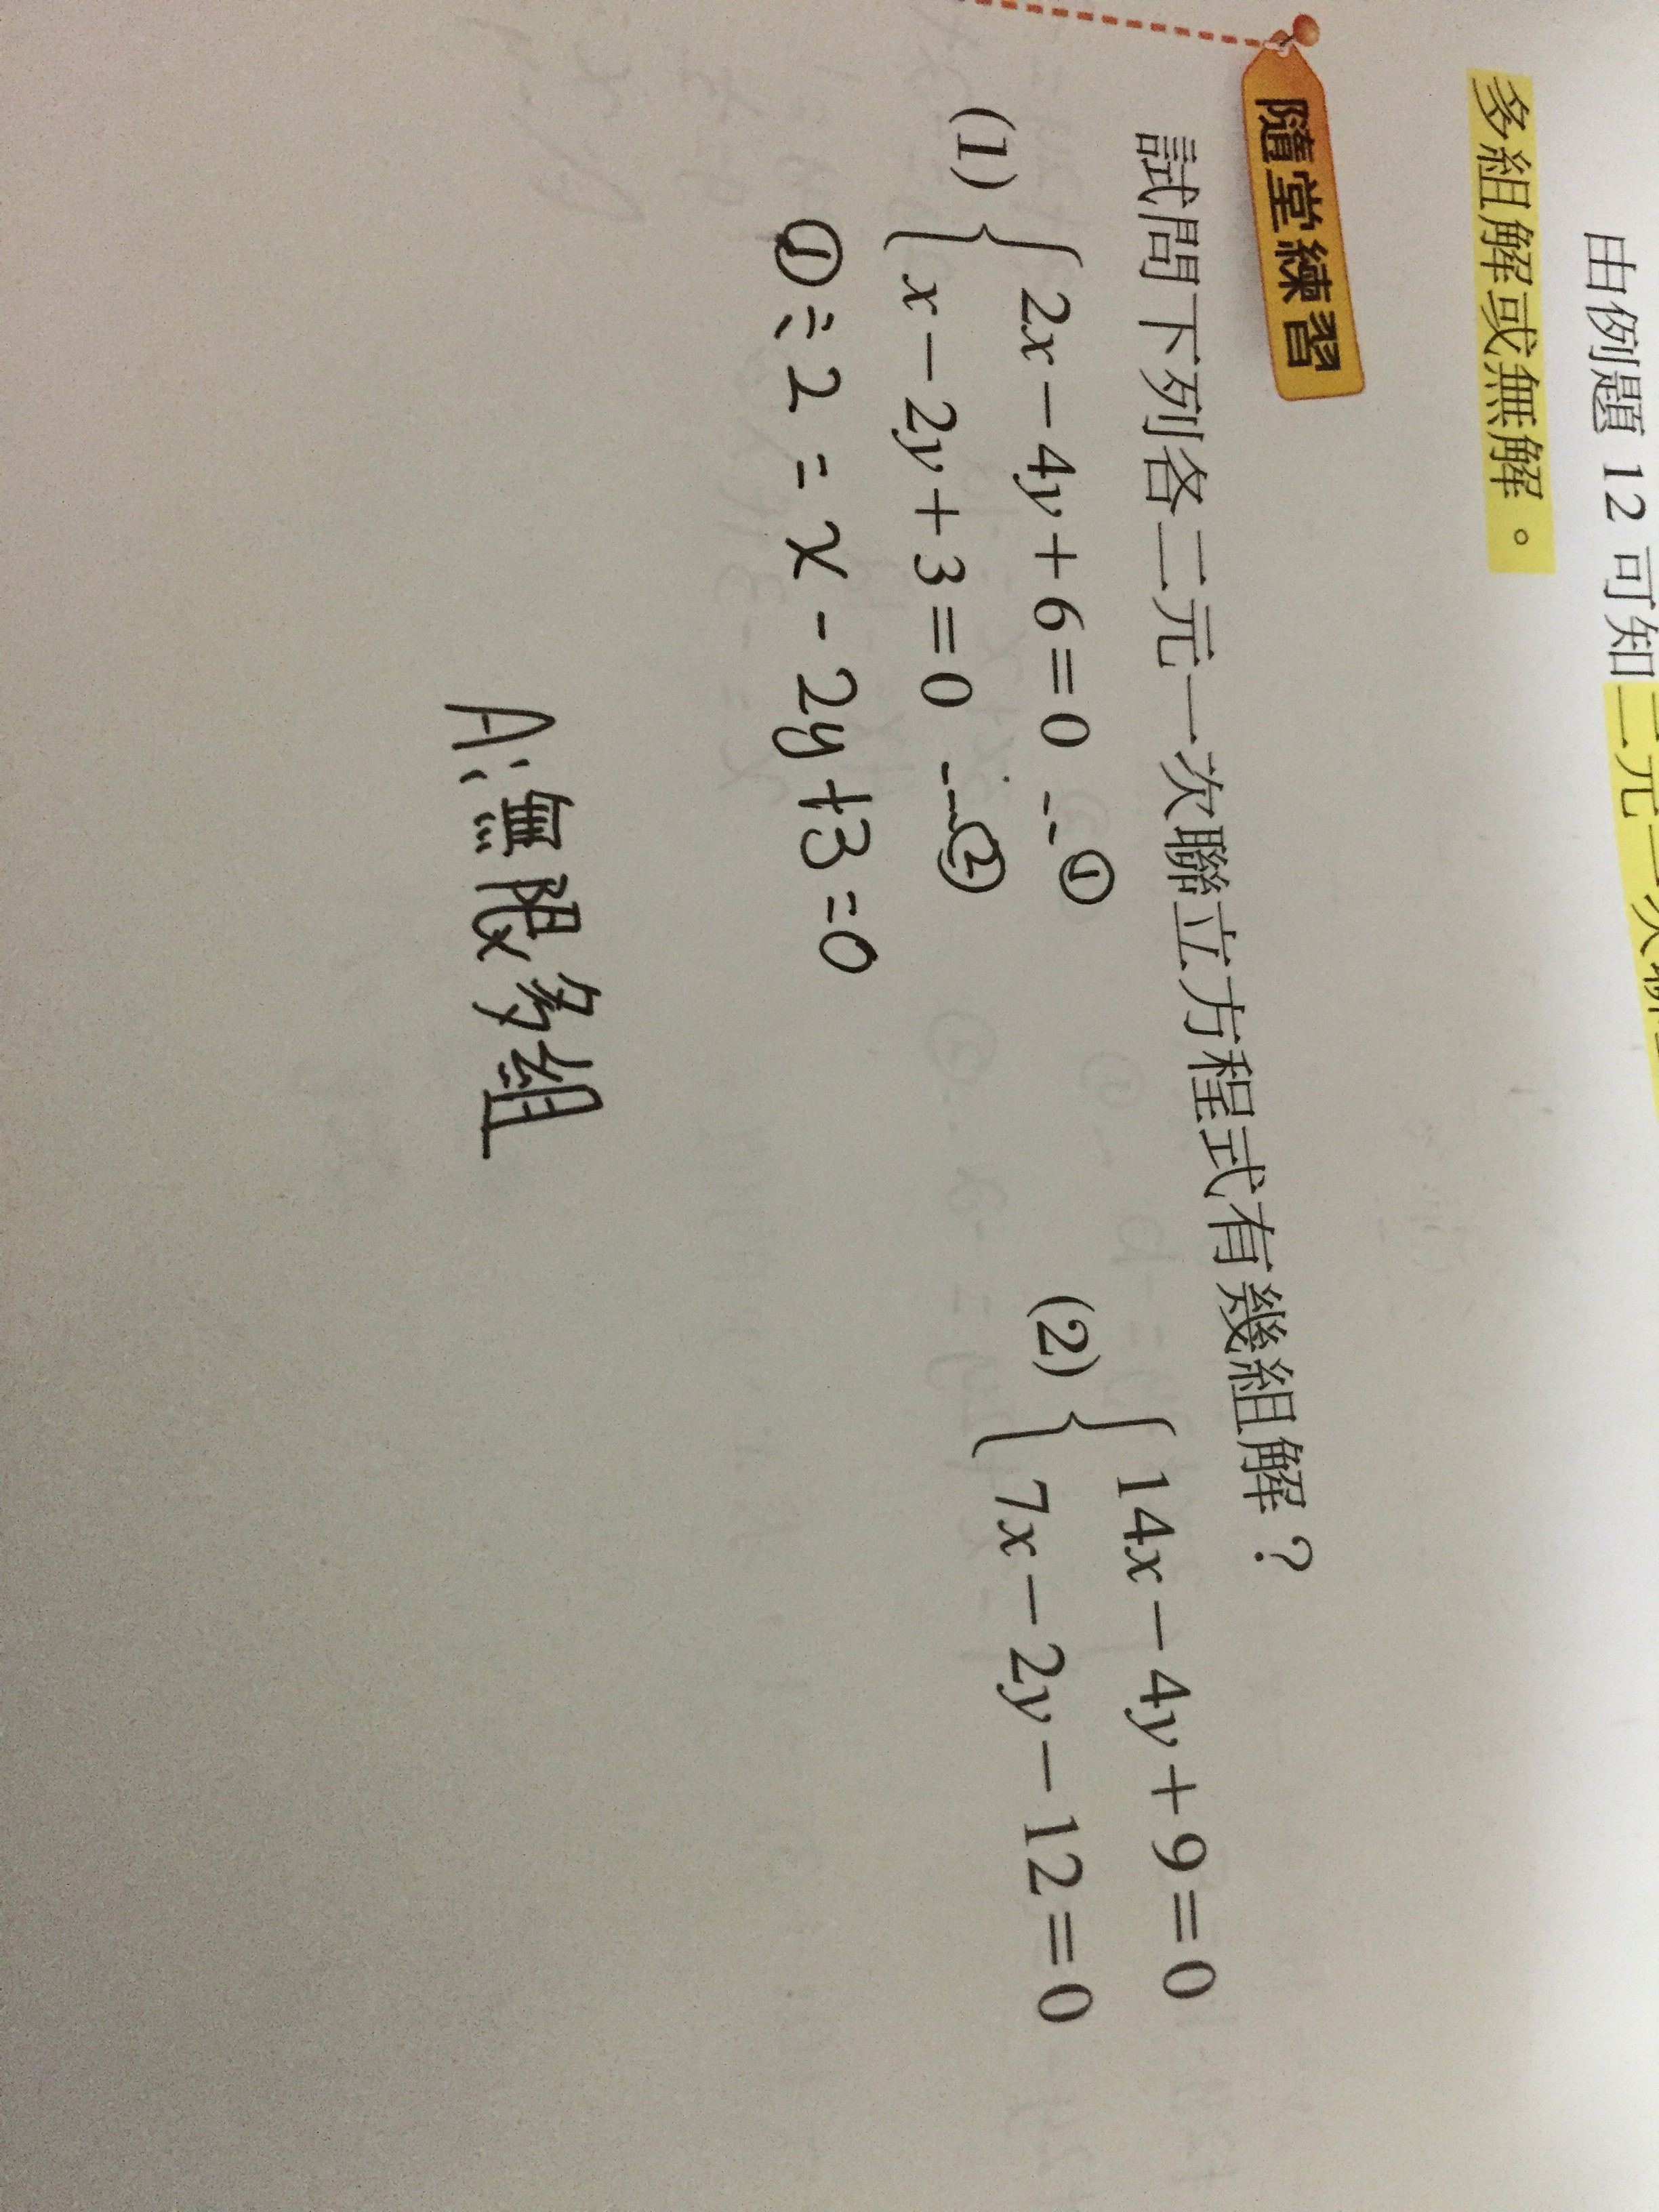 由例題 12 可知二元一次聯
多組解或無解。
隨堂練習
試問下列各二元一次聯立方程式有幾組解？
(1) { 2x－4y＋6＝0 -- ①
x－2y＋3＝0 --- ②
① ÷ 2 = x - 2y + 3 = 0
A: 無限多組
(2) { 14x－4y＋9＝0
7x－2y－12＝0